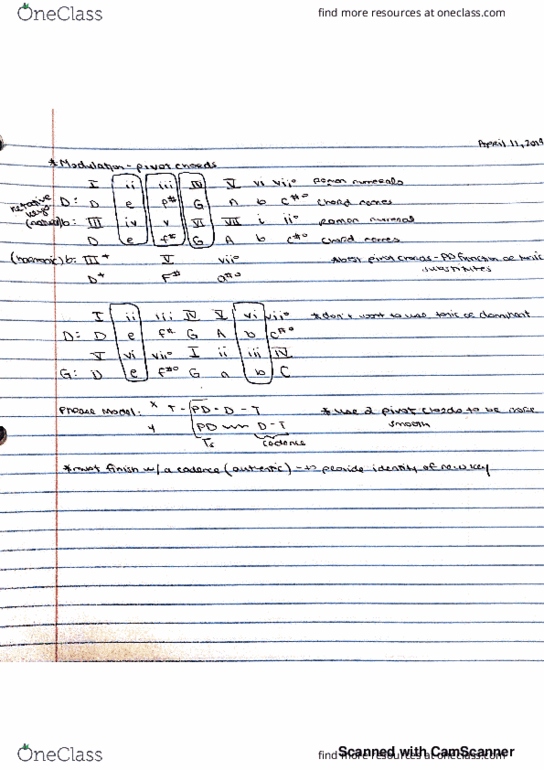 OneClass
find more resources at oneclass.com
April 11, 2019
*Modulation - pivot chords
I ii iii IV V vi vii° Roman numerals
relative keys
D: D e f# G A b c#° chord names
(natural) b: III iv v VI VII i ii° Roman numeral
D e f# G A b c#° chord names
(harmonic) b: III+ V vii° *best pivot chords - PD function or tonic substitutes
D+ F# a#°
I ii iii IV V vi vii° *don't want to use tonic or dominant
D: D e f# G A b c#°
V vi vii° I ii iii IV
G: D e f#° G a b C
Phrase Model: x T - PD - D - T *use 2 pivot chords to be more smooth
y PD D - T
Ts cadence
*must finish w/ a cadence (authentic) → provide identity of new key
Scanned with CamScanner
OneClass
find more resources at oneclass.com